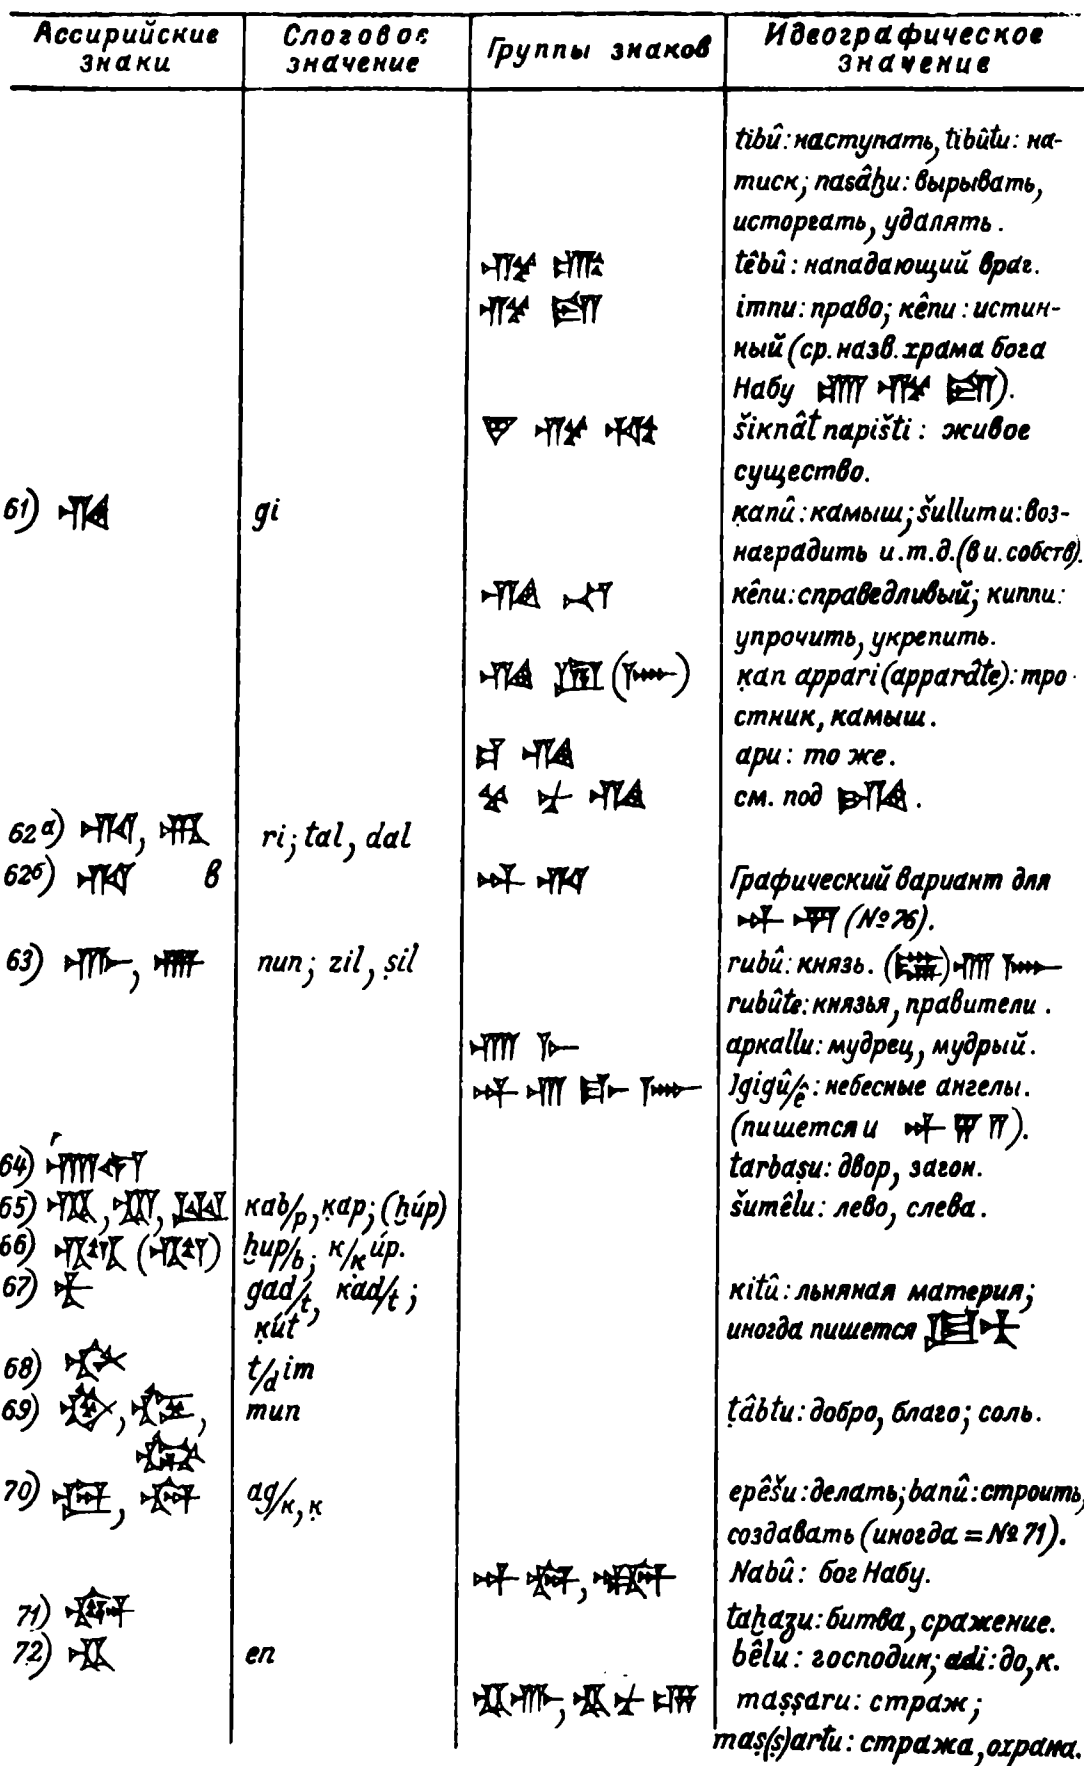 Ассирийские знаки
Слоговое значение
Группы знаков
Идеографическое значение
tibû: наступать, tibûtu: на-
тиск; nasâḫu: вырывать,
исторгать, удалять.
𒍣 𒂟 têbû: нападающий враг.
𒍣 𒁕 imnu: право; кênu: истин-
ный (ср. назв. храма бога
Набу 𒂍 𒍣 𒁕).
𒃻 𒍣 𒅅 šiкnât napišti: живое
существо.
61) 𒄀 gi ḳanû: камыш; šullumu: воз-
наградить и.т.д. (в и. собств).
𒄀 𒈾 кênu: справедливый; кunnu:
упрочить, укрепить.
𒄀 ( 𒈨𒌍 ) ḳan appari (apparâte): тро-
стник, камыш.
𒄀 apu: то же.
𒄀 см. под .
62а) 𒊑, ri; tal, dal
62б) 𒊑 в 𒀭 𒊑 Графический вариант для
𒀭 (№ 76).
63) 𒉣, nun; zil, ṣil rubû: князь. ( ) 𒉣 𒈨𒌍
rubûte: князья, правители.
𒉣 𒈨 apкallu: мудрец, мудрый.
𒀭 𒉣 𒃲 𒈨𒌍 Igigû/ê: небесные ангелы.
(пишется и 𒀭 ).
64) tarbaṣu: двор, загон.
65) 𒆏, , каb/p, ḳap; (ḫúp) šumêlu: лево, слева.
66) ( ) ḫup/b; к/ḳúp.
67) 𒃰 gad/t, кad/t; кitû: льняная материя;
ḳút иногда пишется 𒃰
68) 𒁴 t/dim
69) 𒁵, , mun ṭâbtu: добро, благо; соль.
70) 𒀝, ag/к, ḳ epêšu: делать; banû: строить,
создавать (иногда = № 71).
𒀭 𒀝, Nabû: бог Набу.
71) taḫazu: битва, сражение.
72) 𒂗 en bêlu: господин; adi: до, к.
𒂗 𒉣, 𒂗 maṣṣaru: страж;
maṣ(ṣ)artu: стража, охрана.